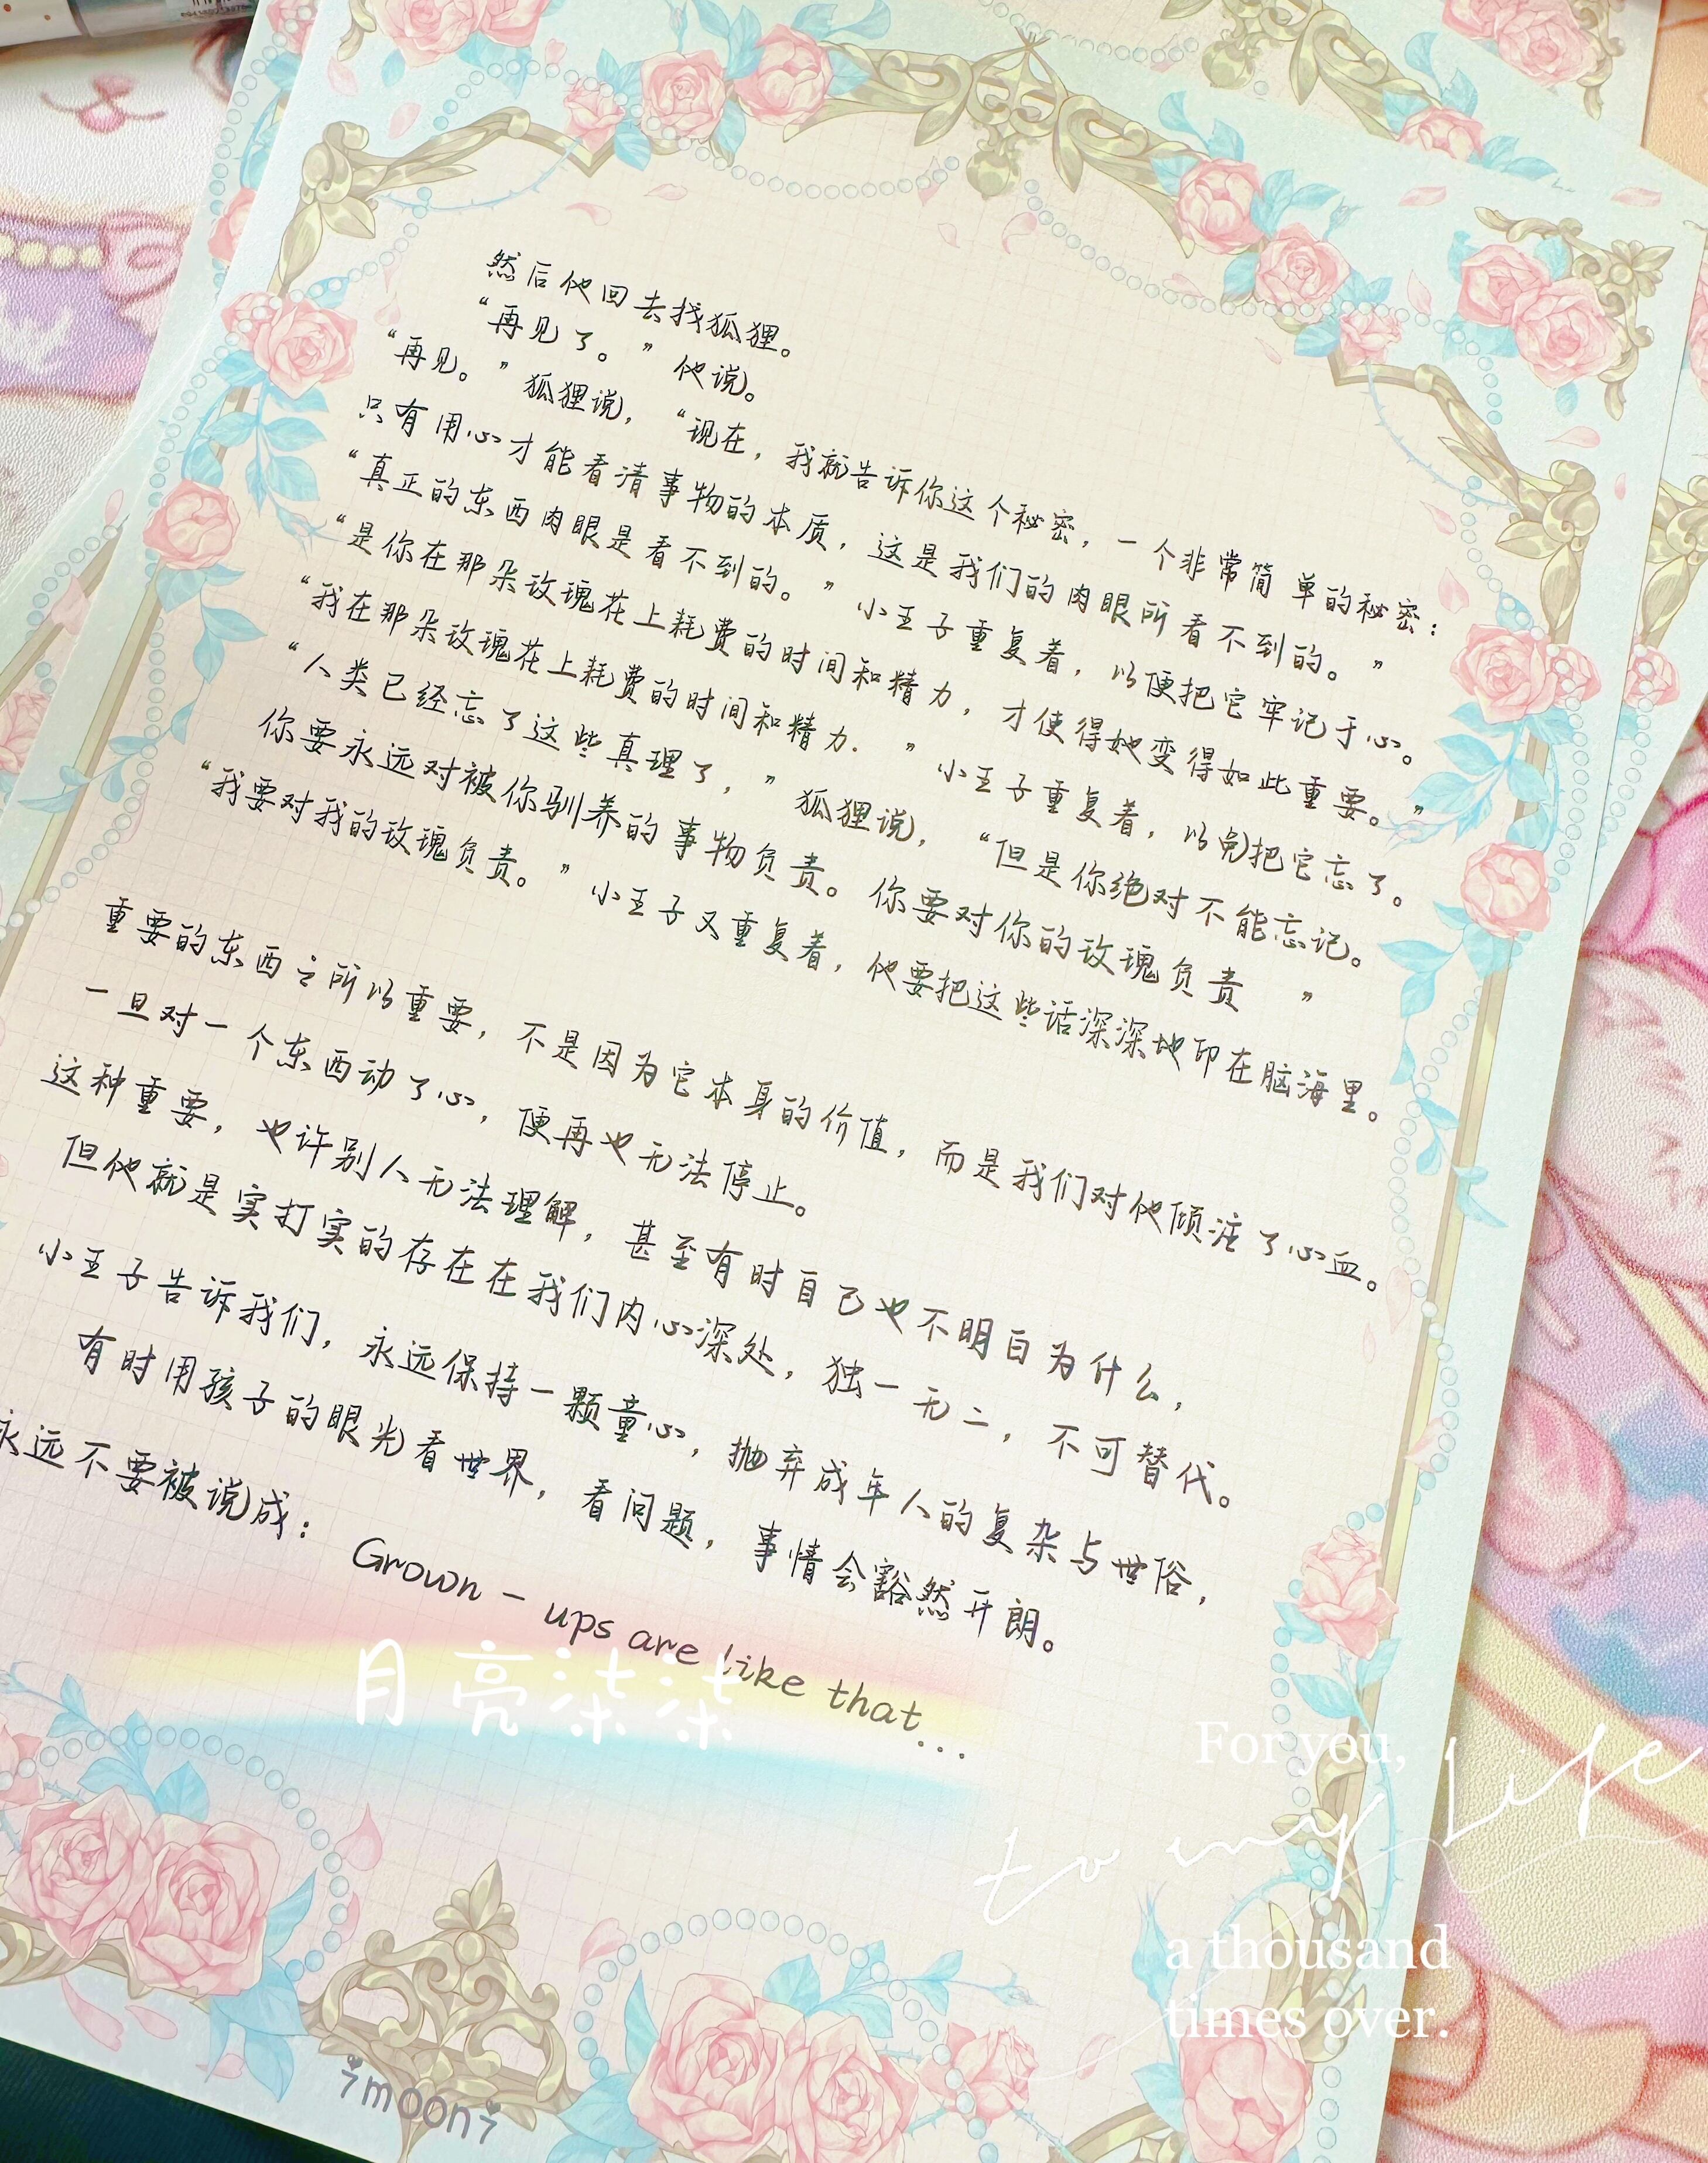 然后他回去找狐狸。
“再见了。”他说。
“再见。”狐狸说，“现在，我就告诉你这个秘密，一个非常简单的秘密：
只有用心才能看清事物的本质，这是我们的肉眼所看不到的。”
“真正的东西肉眼是看不到的。”小王子重复着，以便把它牢记于心。
“是你在那朵玫瑰花上耗费的时间和精力，才使得她变得如此重要。”
“我在那朵玫瑰花上耗费的时间和精力．”小王子重复着，以免把它忘了。
“人类已经忘了这些真理了，”狐狸说，“但是你绝对不能忘记。
你要永远对被你驯养的事物负责。你要对你的玫瑰负责 ”
“我要对我的玫瑰负责。”小王子又重复着，他要把这些话深深地印在脑海里。
重要的东西之所以重要，不是因为它本身的价值，而是我们对他倾注了心血。
一旦对一个东西动了心，便再也无法停止。
这种重要，也许别人无法理解，甚至有时自己也不明白为什么，
但他就是实打实的存在在我们内心深处，独一无二，不可替代。
小王子告诉我们，永远保持一颗童心，抛弃成年人的复杂与世俗，
有时用孩子的眼光看世界，看问题，事情会豁然开朗。
永远不要被说成：Grown-ups are like that...
月亮柒柒
For you,
to my Life
a thousand
times over.
moon